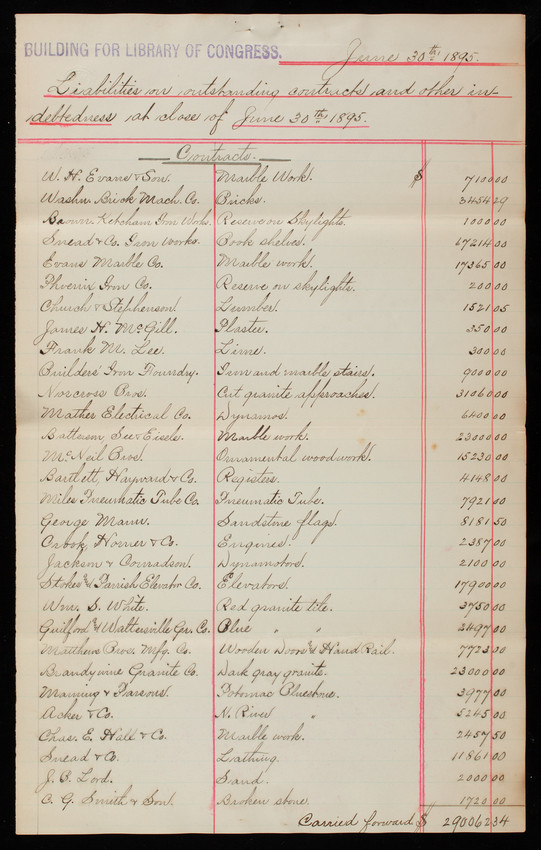 BUILDING FOR LIBRARY OF CONGRESS. June 30th 1895.
Liabilities on outstanding contracts and other in-
debtedness at close of June 30th 1895.
Contracts.
W. H. Evans & Son. Marble Work. $ 710 00
Washn. Brick Mach. Co. Bricks. 3454 29
Brown. Ketcham Iron Works. Reserve on Skylights. 1000 00
Snead & Co. Iron Works. Book shelves. 67214 00
Evans Marble Co. Marble work. 17365 00
Phoenix Iron Co. Reserve on skylights. 200 00
Church & Stephenson. Lumber. 1521 05
James H. McGill. Plaster. 350 00
Frank M. Lee. Lime. 300 00
Builders' Iron Foundry. Iron and marble stairs. 9000 00
Norcross Bros. Cut granite approaches. 31060 00
Mather Electrical Co. Dynamos. 6400 00
Batterson, See & Eisele. Marble work. 23000 00
McNeil Bros. Ornamental woodwork. 15230 00
Bartlett, Hayward & Co. Registers. 4148 00
Miles Pneumatic Tube Co. Pneumatic Tube. 7921 00
George Mann. Sandstone flags. 8181 50
Crook, Horner & Co. Engines. 2387 00
Jackson & Co. Dynamotors. 2100 00
Stokes & Parrish Elevator Co. Elevators. 17900 00
Wm. S. White. Red granite tile. 3750 00
Guilford & Waltersville Gr. Co. Blue " " 2497 00
Matthews Bros. Mfg. Co. Wooden Doors & Hand Rail. 7723 00
Brandywine Granite Co. Dark gray granite. 23000 00
Manning & Parsons. Potomac Bluestone. 3977 00
Acker & Co. N. River " 5245 00
Chas. E. Hall & Co. Marble work. 2457 50
Snead & Co. Lathing. 11861 00
J. B. Lord. Sand. 2000 00
C. G. Smith & Son. Broken stone. 1720 00
Carried forward $ 290062 34